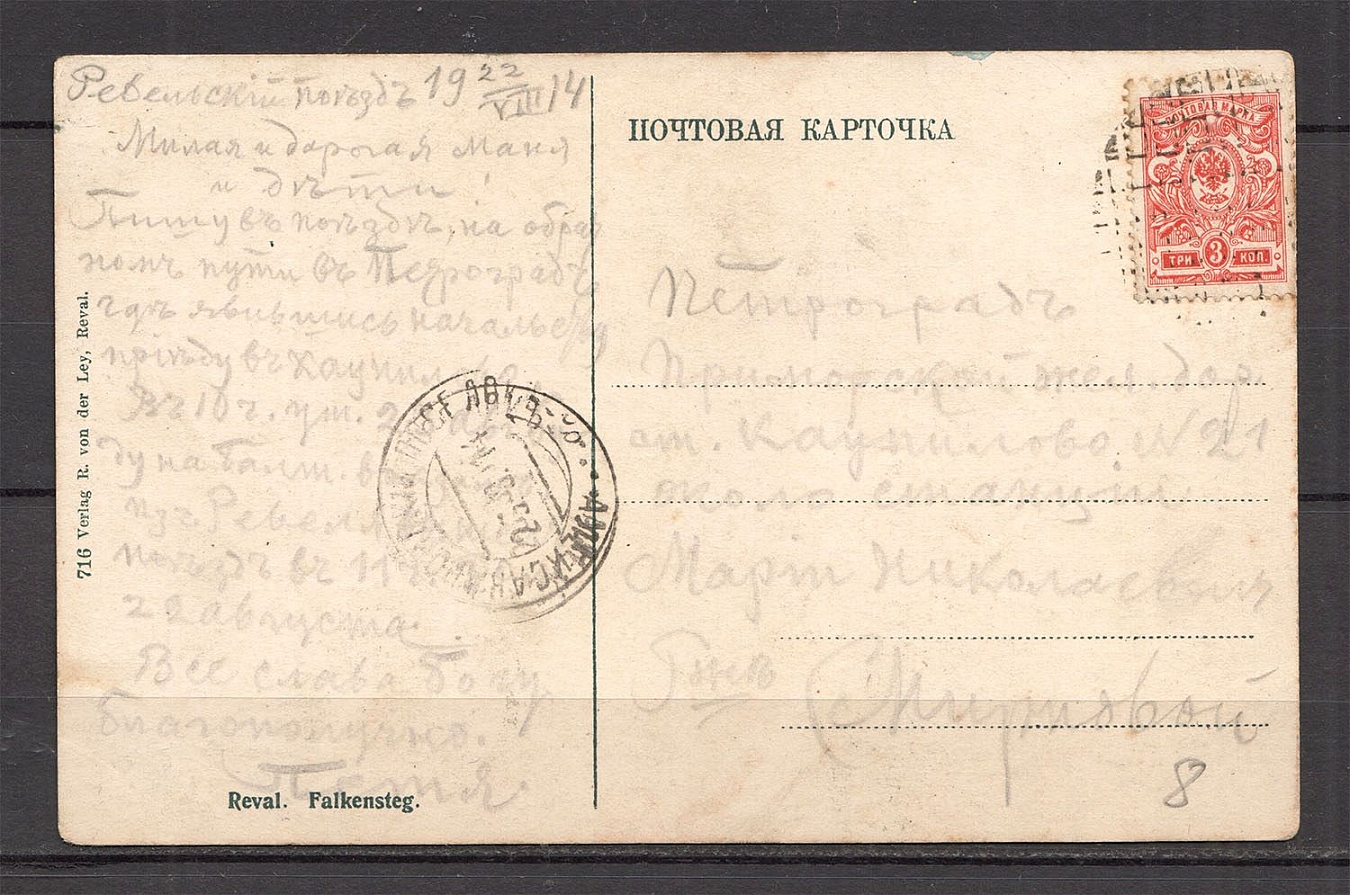 Ревельскій поѣздъ 19 22/VIII 14
Милая и дорогая Маня
и дѣти!
Пишу въ поѣздѣ, на обрат
номъ пути въ Петроградъ,
гдѣ явившись начальс
пріѣду въ Каупилово.
Въ 10 ч. ут. 2
ду на балт. в
изъ Ревеля
поѣздъ въ 11
22 августа.
Все слава богу
благополучно.
Петя
716 Verlag R. von der Ley, Reval.
Reval. Falkensteg.
ПОЧТОВАЯ КАРТОЧКА
ПОЧТОВАЯ МАРКА
ТРИ 3 КОП.
Петроградъ
Приморской жел. дор.
ст. Каупилово. N 21
около станціи.
Маріи Николаевнѣ
8